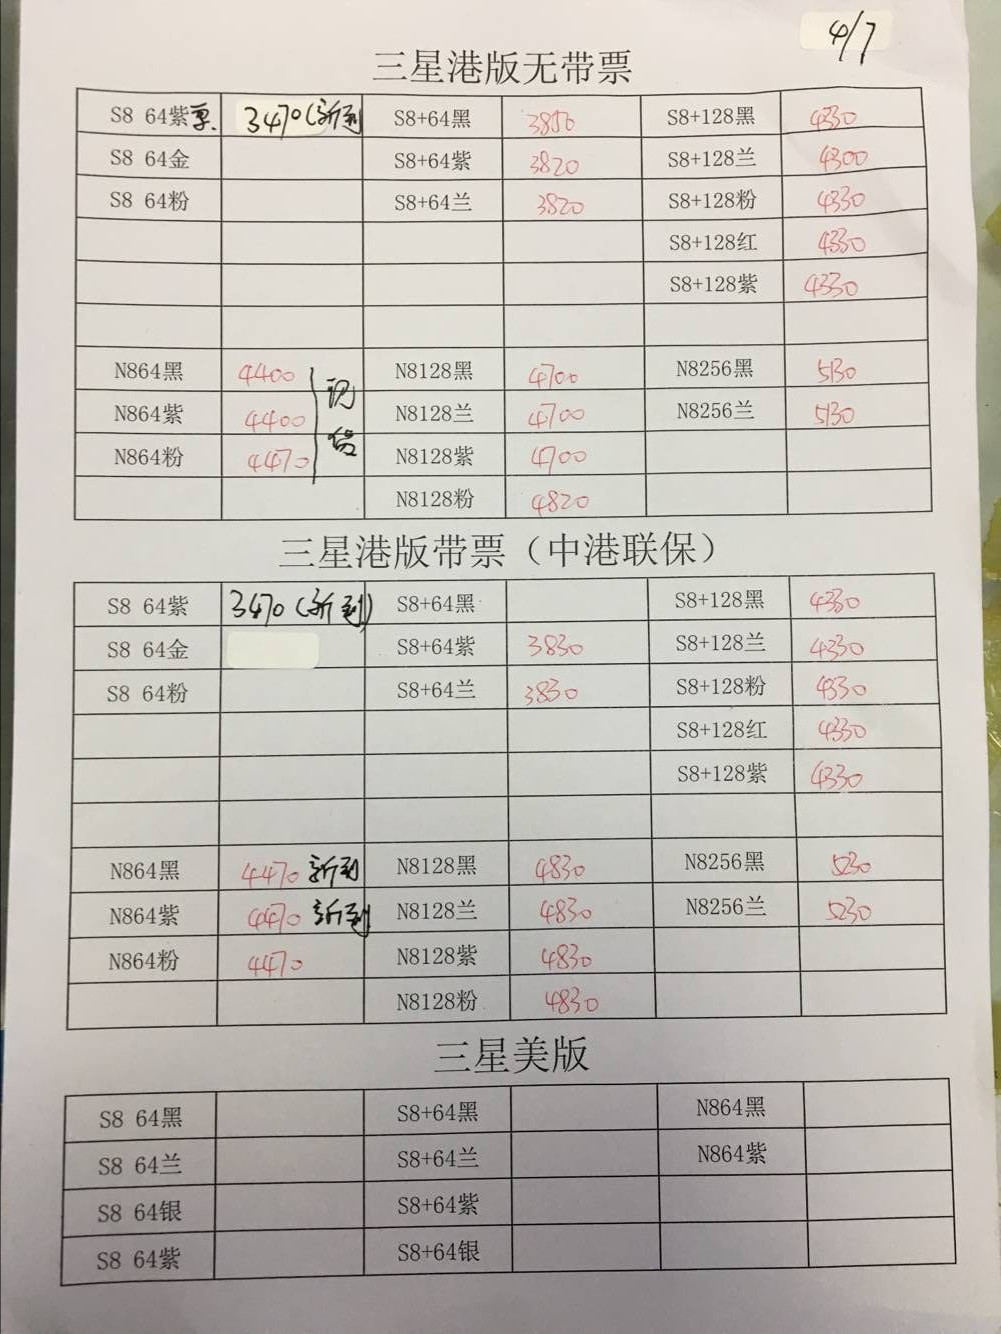 4/7
三星港版无带票
S8 64紫票 3470(新到 S8+64黑 3850 S8+128黑 4330
S8 64金 S8+64紫 3820 S8+128兰 4300
S8 64粉 S8+64兰 3820 S8+128粉 4330
S8+128红 4330
S8+128紫 4330
N864黑 4400 现货 N8128黑 4700 N8256黑 5130
N864紫 4400 N8128兰 4700 N8256兰 5130
N864粉 4470 N8128紫 4700
N8128粉 4820
三星港版带票（中港联保）
S8 64紫 3470(新到) S8+64黑 S8+128黑 4330
S8 64金 S8+64紫 3830 S8+128兰 4330
S8 64粉 S8+64兰 3830 S8+128粉 4330
S8+128红 4330
S8+128紫 4330
N864黑 4470 新到 N8128黑 4830 N8256黑 5230
N864紫 4470 新到 N8128兰 4830 N8256兰 5230
N864粉 4470 N8128紫 4830
N8128粉 4830
三星美版
S8 64黑 S8+64黑 N864黑
S8 64兰 S8+64兰 N864紫
S8 64银 S8+64紫
S8 64紫 S8+64银